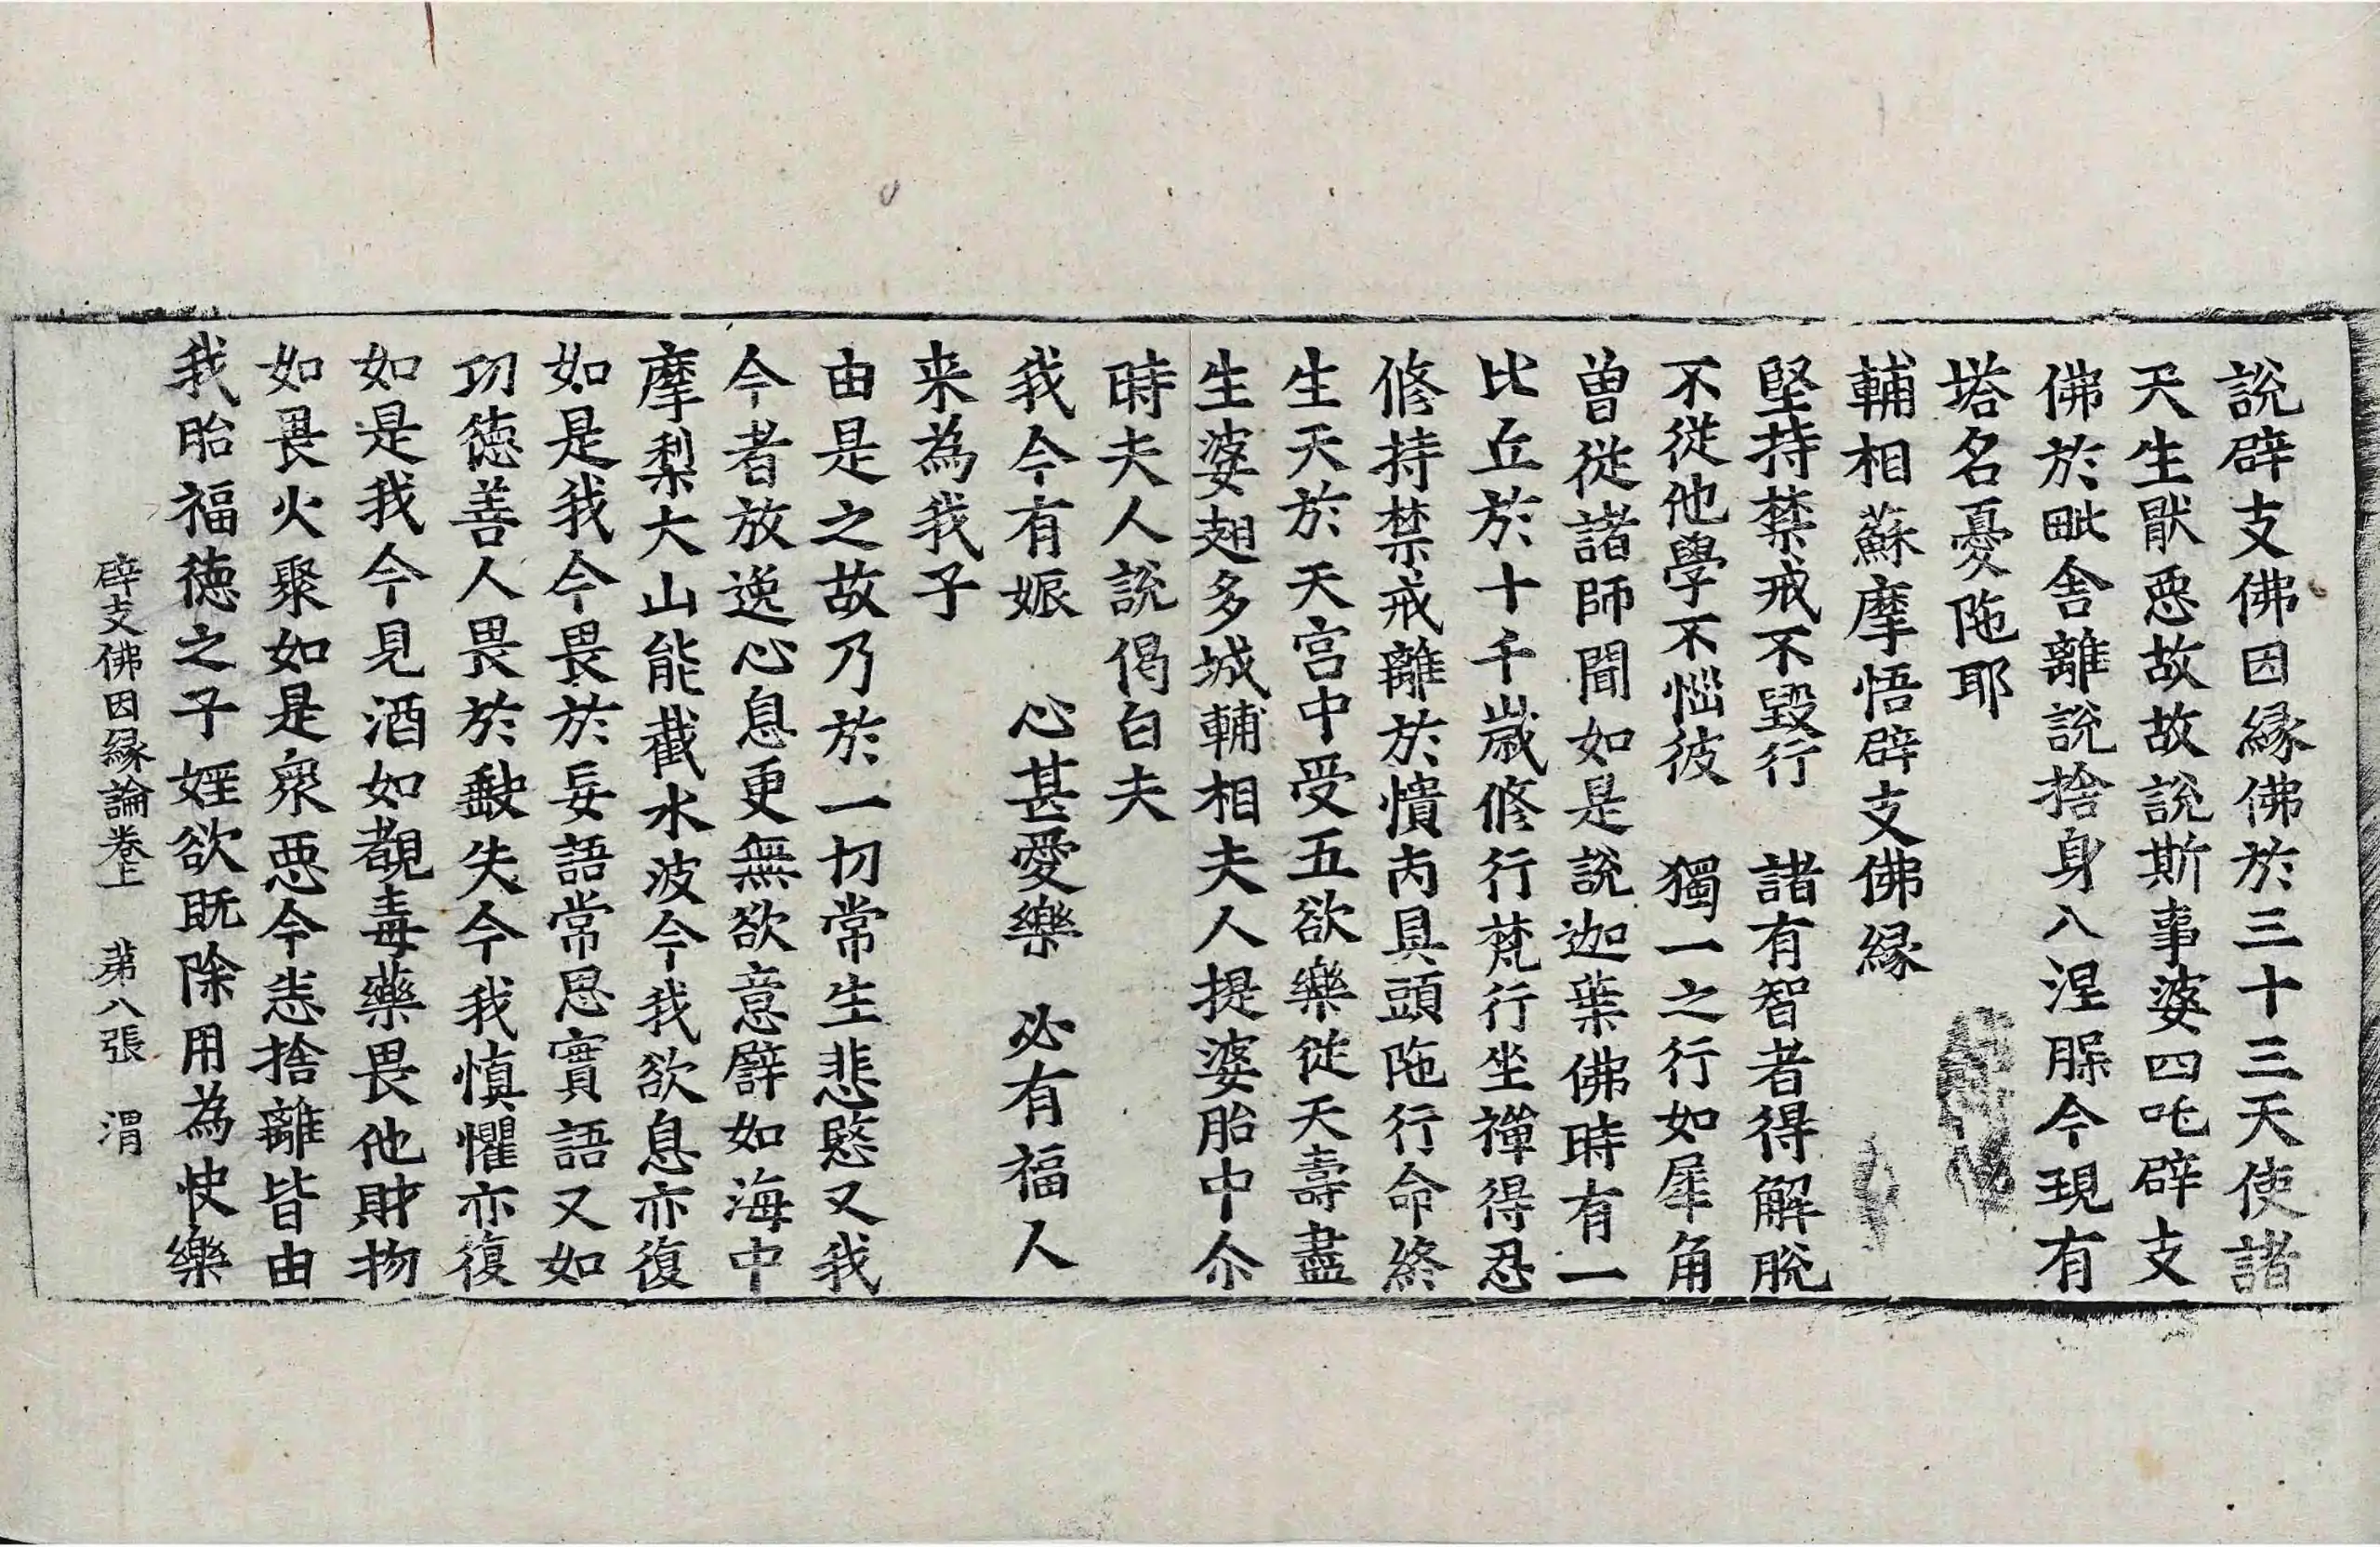 說辟支佛因縁佛於三十三天使諸
天生猒惡故故說斯事婆四吒辟支
佛於毗舎離說捨身入涅脲今現有
塔名憂陁耶
輔相蘇摩悟辟支佛縁
堅持禁戒不毀行　諸有智者得解脫
不從他學不惱彼　獨一之行如犀角
曽從諸師聞如是說迦葉佛時有一
比丘於十千歳修行梵行坐禪得忍
修持禁戒離於憒丙具頭陁行命終
生天於天宮中受五欲樂従天壽盡
生婆翅多城輔相夫人提婆胎中尒
時夫人說偈白夫
我今有娠　心甚愛樂　必有福人
来為我子
由是之故乃於一切常生悲愍又我
今者放逸心息更無欲意譬如海中
摩梨大山能截水波今我欲息亦復
如是我今畏於妄語常思實語又如
功徳善人畏於𢽽失今我慎懼亦復
如是我今見酒如覩毒藥畏他財物
如畏火聚如是衆惡今悉捨離皆由
我胎福徳之子婬欲既除用為快樂
辟支佛因縁論卷上　苐八張　渭